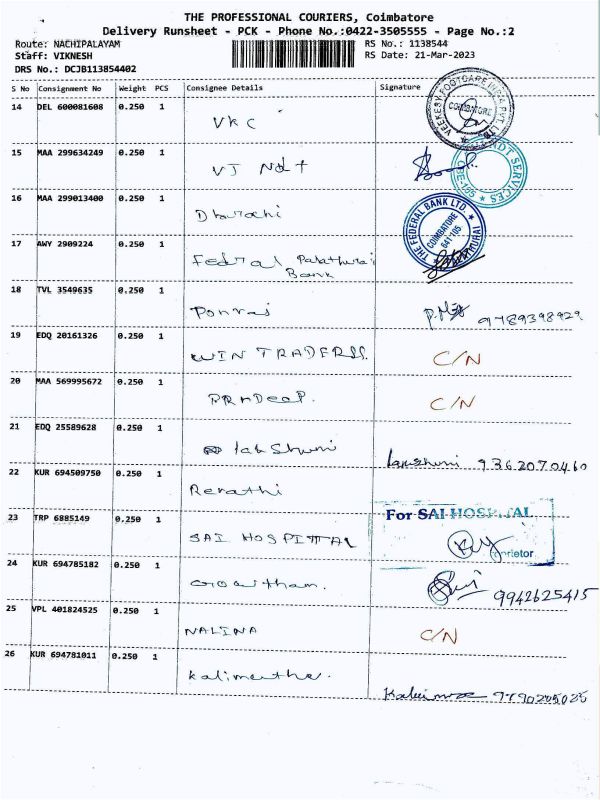 THE PROFESSIONAL COURIERS, Coimbatore
Delivery Runsheet - PCK - Phone No.:0422-3505555 - Page No.:2
Route: NACHIPALAYAM RS No.: 1138544
Staff: VIKNESH RS Date: 21-Mar-2023
DRS No.: DCJB113854402
S No Consignment No Weight PCS Consignee Details Signature
14 DEL 600081608 0.250 1
VKC
VEEKESY FOOTCARE INDIA PVT. LTD COIMBATORE
15 MAA 299634249 0.250 1
VJ Ndt
NDT SERVICES
16 MAA 299013400 0.250 1
Dharani
17 AWY 2909224 0.250 1
Fedral Palathurai
Bank
THE FEDERAL BANK LTD. COIMBATORE 641 105
18 TVL 3549635 0.250 1
Ponraj
9789398929
19 EDQ 20161326 0.250 1
WIN TRADERSS. C/N
20 MAA 569995672 0.250 1
PRADeeP. C/N
21 EDQ 25589628 0.250 1
lakshmi
Lakshmi 9362070460
22 KUR 694509750 0.250 1
Revathi
23 TRP 6885149 0.250 1
SAI HOSPITTAL
For SAI HOSPITAL
24 KUR 694785182 0.250 1
Gowtham. 9942625415
25 VPL 401824525 0.250 1
NALINA C/N
26 KUR 694781011 0.250 1
kalimuthu.
9790205025